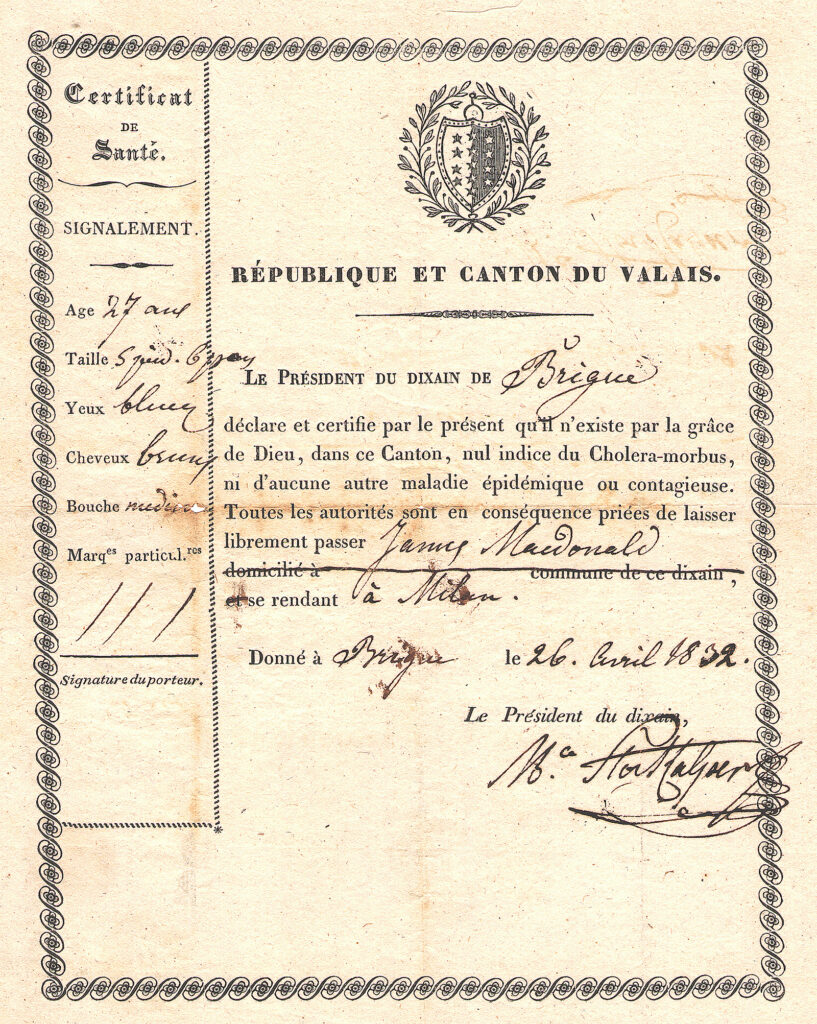 Certificat
DE
Santé.
SIGNALEMENT.
Age 27 ans
Taille 5 pied. 6
Yeux bleues
Cheveux bruns
Bouche
Marq.es particul.res
/ / /
Signature du porteur.
RÉPUBLIQUE ET CANTON DU VALAIS.
LE PRÉSIDENT DU DIXAIN DE Brigue
déclare et certifie par le présent qu'il n'existe par la grâce
de Dieu, dans ce Canton, nul indice du Cholera-morbus,
ni d'aucune autre maladie épidémique ou contagieuse.
Toutes les autorités sont en conséquence priées de laisser
librement passer James Macdonald
domicilié à commune de ce dixain,
et se rendant à Milan.
Donné à Brigue le 26. Avril 1832.
Le Président du dixain,